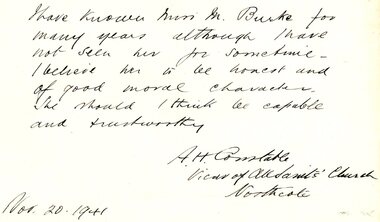 I have known Miss M. Burke for
many years although I have
not seen her for sometime.
I believe her to be honest and
of good moral character.
She should I think be capable
and trustworthy
A.H. Constable
Vicar of All Saints' Church
Northcote
Nov. 20. 1941